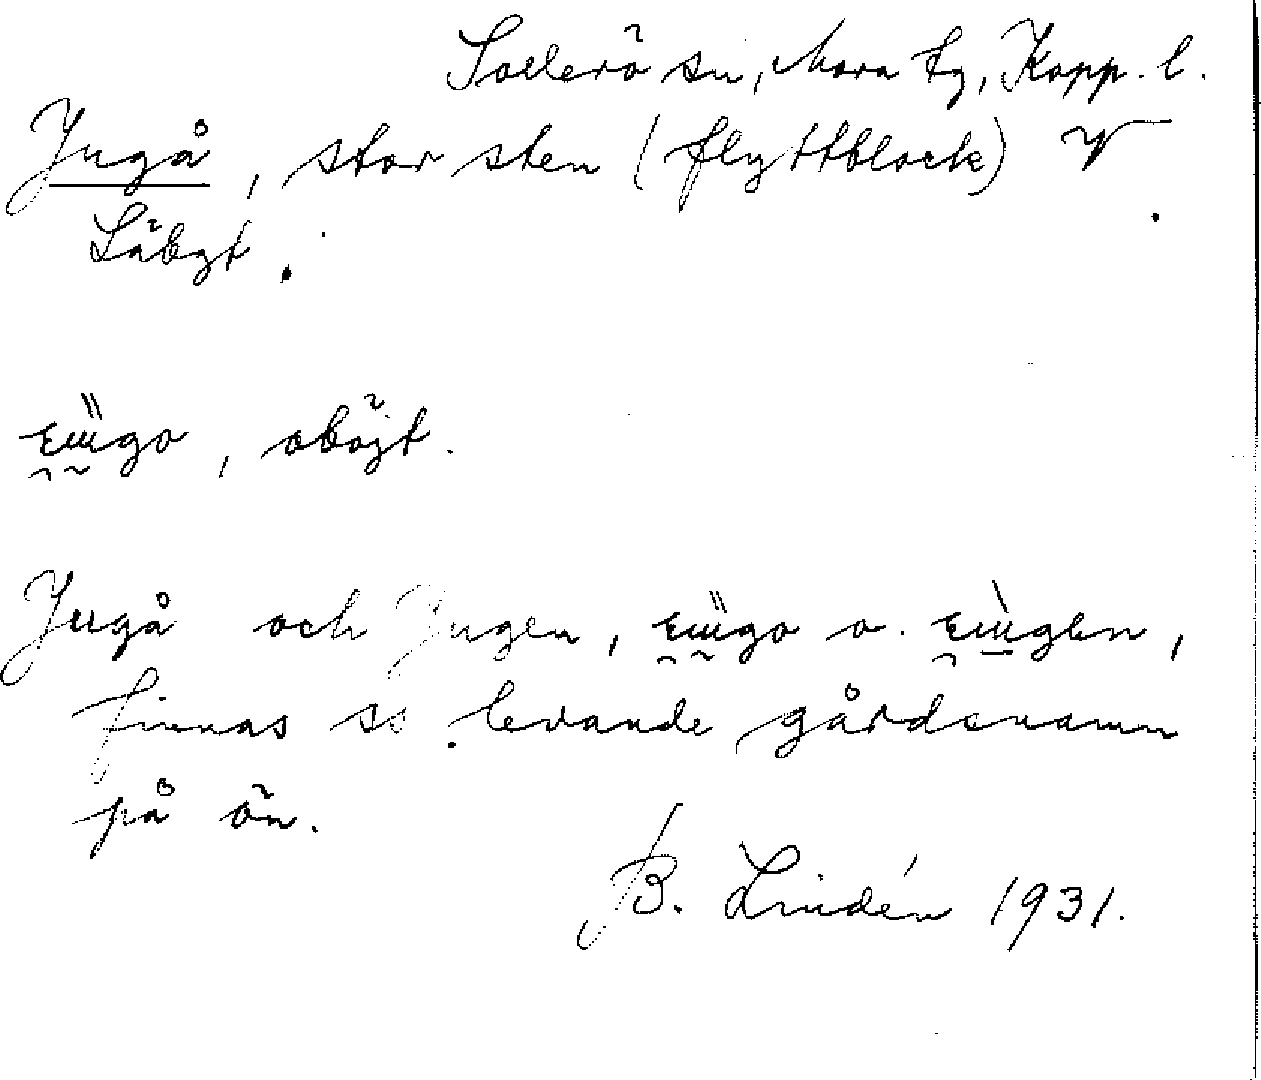 Sollerö sn, Mora tg, Kopp. l.
Jugå, stor sten (flyttblock) V
Läbyt.
, oböjt.
Jugå och Jugen, o.
finnas ss levande gårdsnamn
på ön.
B. Lindén 1931.